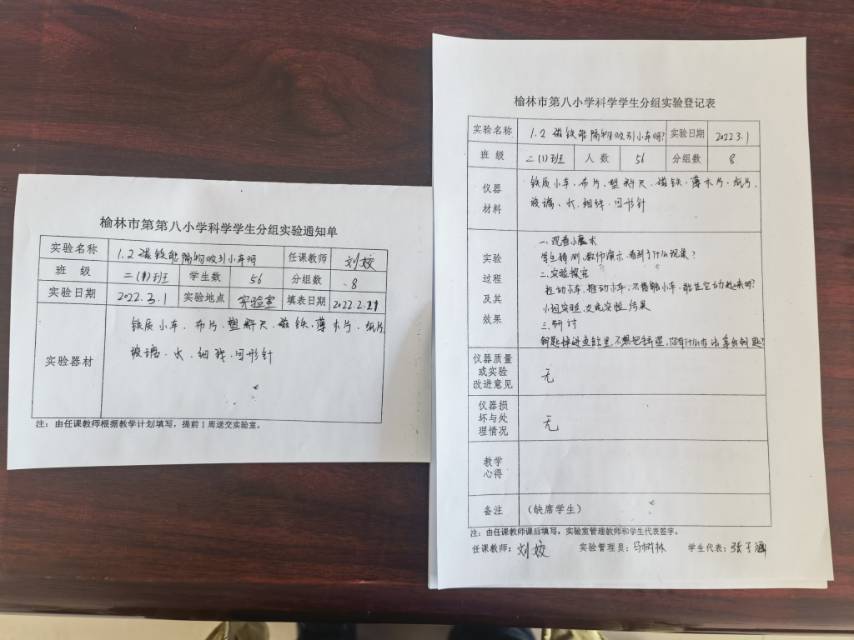 榆林市第第八小学科学学生分组实验通知单
实验名称 1.2磁铁能隔物吸引小车吗 任课教师 刘姣
班 级 二(1)班 学生数 56 分组数 8
实验日期 2022.3.1 实验地点 实验室 填表日期 2022.2.21
实验器材
铁质小车、布片、塑料尺、磁铁、薄木片、纸片
玻璃、水、细线、回形针
注：由任课教师根据教学计划填写，提前1周送交实验室。
榆林市第八小学科学学生分组实验登记表
实验名称 1.2 磁铁能隔物吸引小车吗? 实验日期 2022.3.1
班 级 二(1)班 人 数 56 分组数 8
仪器材料
铁质小车、布片、塑料尺、磁铁、薄木片、纸片、
玻璃、水、细线、回形针
实验过程及其效果
一、观看小魔术
学生猜测，教师演示，看到了什么现象?
二、实验探究
拉动小车，推动小车，不接触小车，能让它动起来吗?
小组实验，交流实验结果
三、研讨
钥匙掉进鱼缸里，不想把手弄湿，你有什么办法拿出钥匙?
仪器质量或实验改进意见 无
仪器损坏与处理情况 无
教学心得
备注 （缺席学生）
注：由任课教师课后填写，实验室管理教师和学生代表签字。
任课教师：刘姣 实验管理员：马树林 学生代表：张子涵